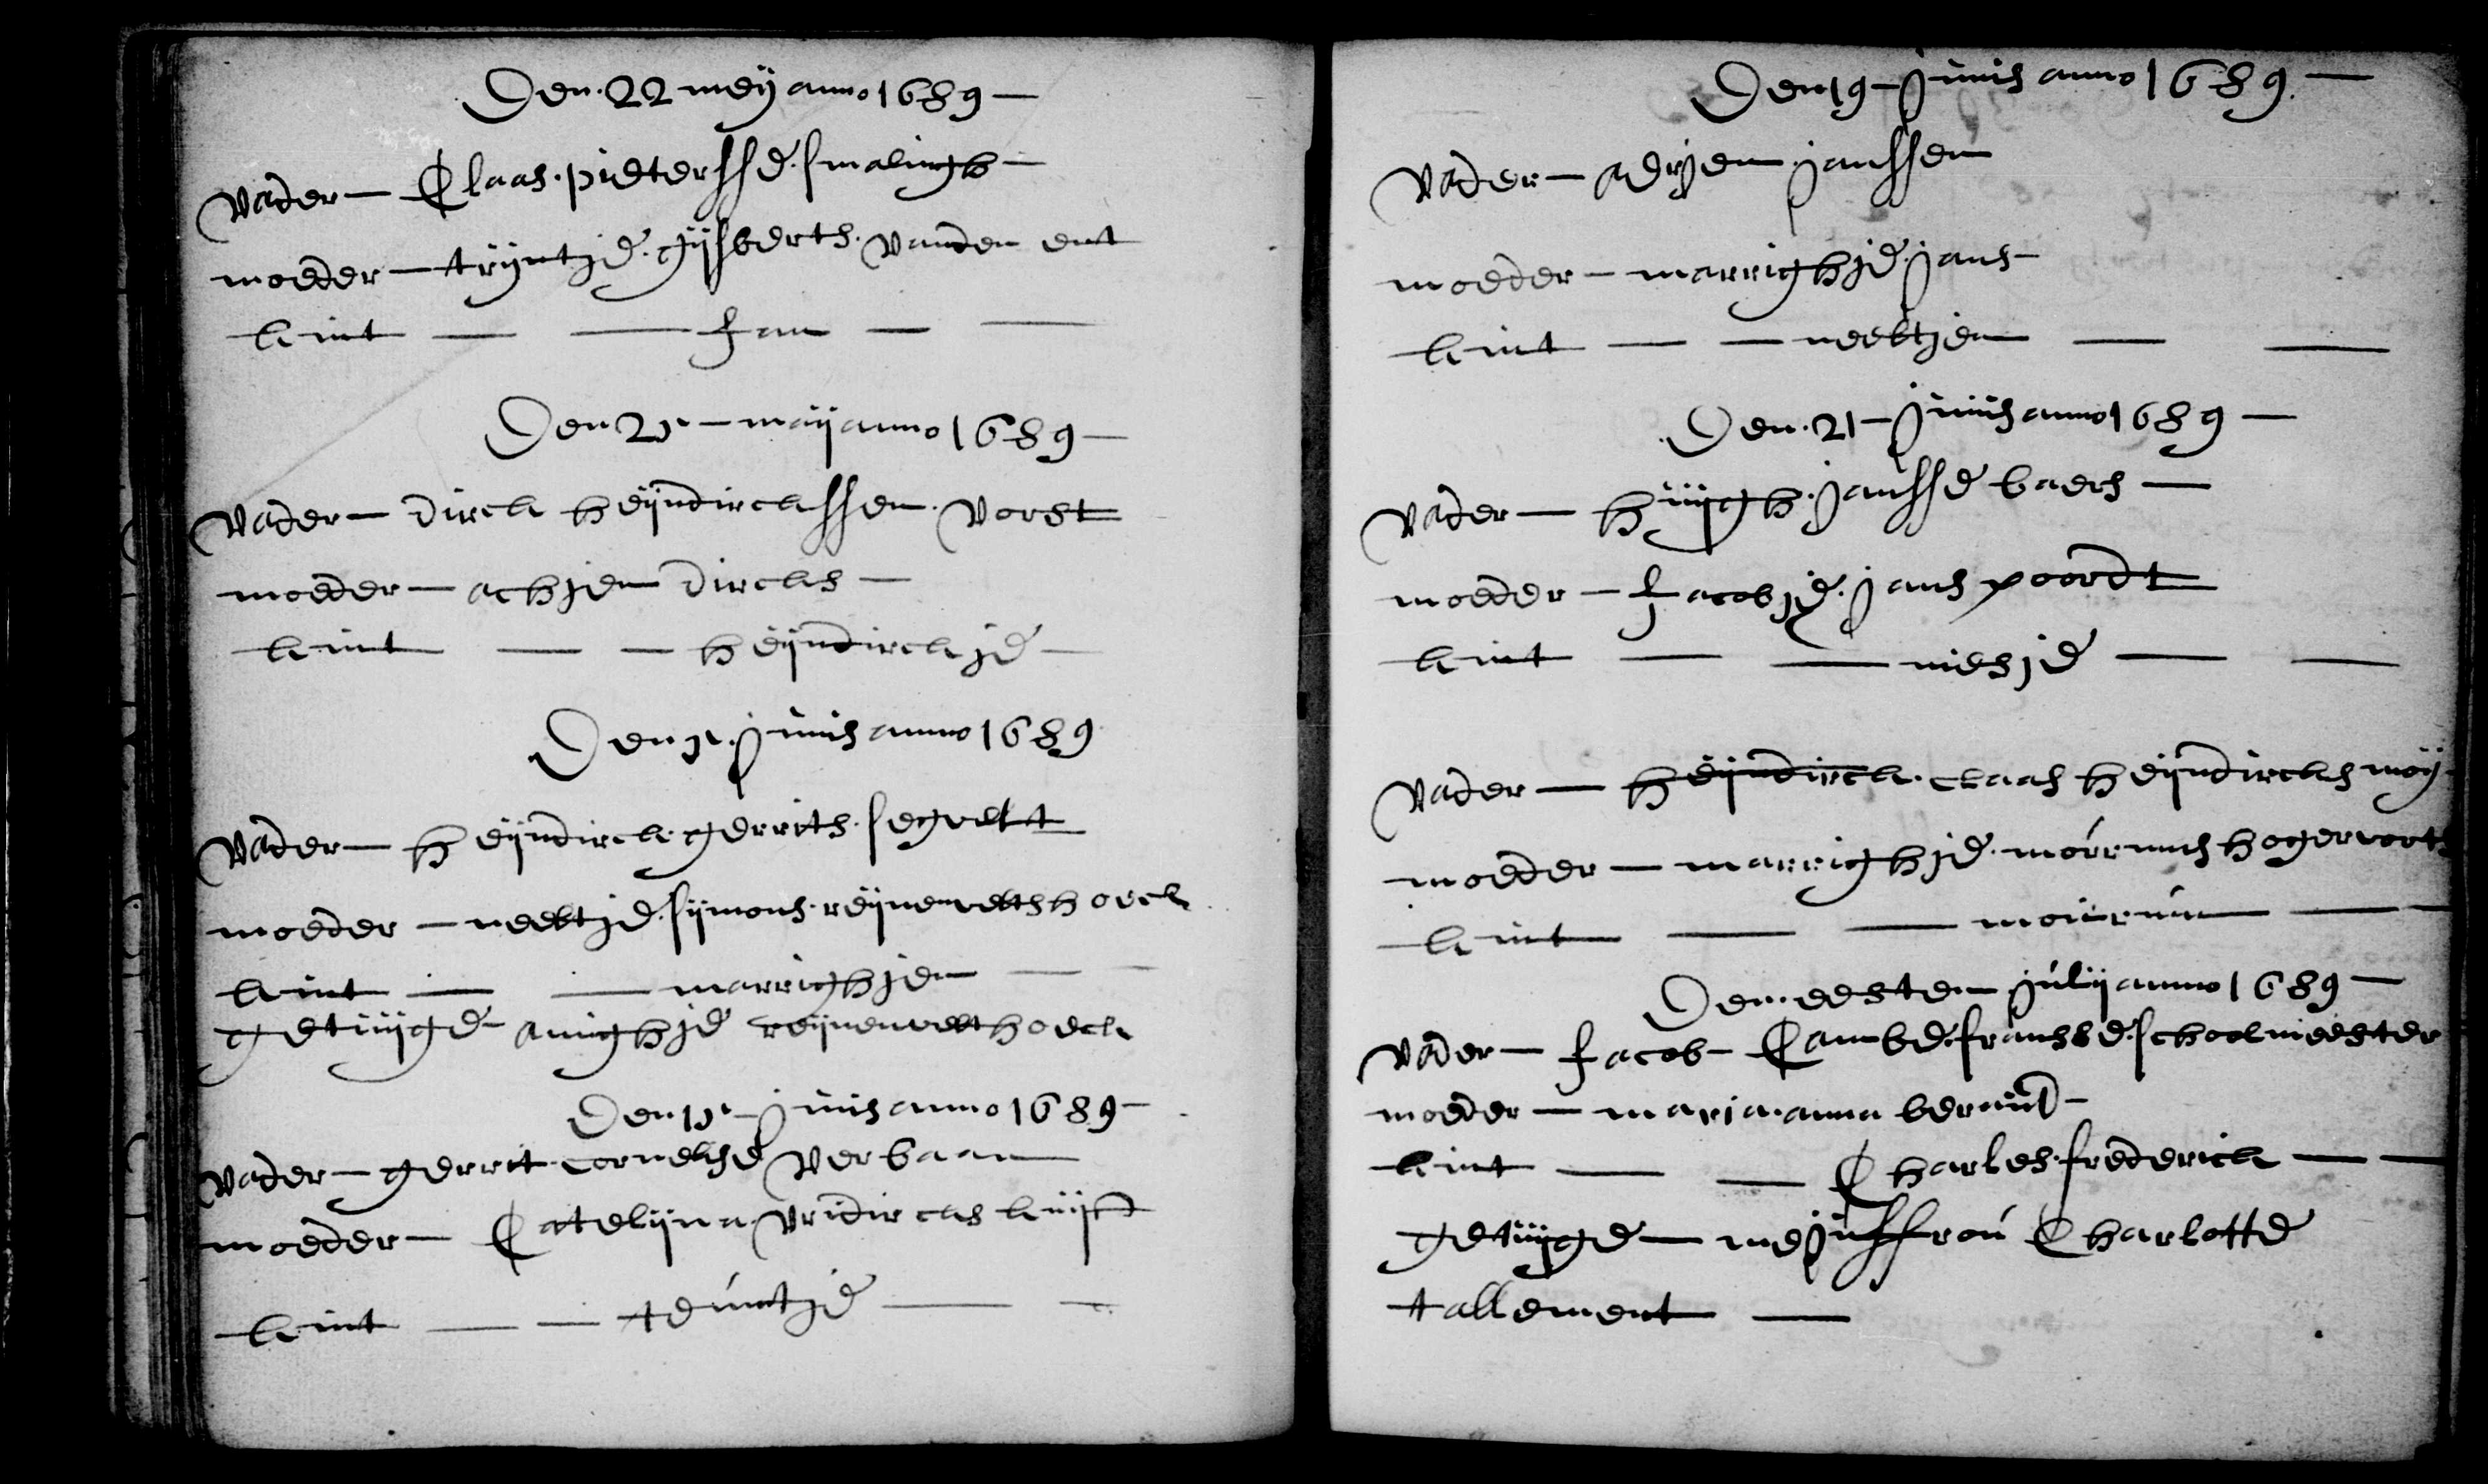 Den 22 meij anno 1689
Vader - Claas pieterssE smalingh
moeder - trijntje gijsberts vanden ent
kint - - Jan -
Den 25 - maij anno 1689
Vader - dirck heijndirckssen vorst
moeder - achjen dircks -
kint - - heijndirckje
Den 5 junis anno 1689
Vader - heijndirck gerrits segvelt
moeder - neeltje sijmons reijnenveltshoeck
kint - - marrighjen
getuijge - anighje reijnenvelthoeck
Den 15 - junis anno 1689
Vader - gerrit cornelisse verbaan
moeder - Catelijna dircks kuijf
kint - - teuntje
Den 19 - junis anno 1689
Vader - adrijen janssen
moeder - marrighje jans
kint - - neeltjen
Den 21 - junis anno 1689
Vader - huijgh jansse baers
moeder - Jacobje jans poordt
kint - - niesje
Vader - heijndirck claas heijndircks moij
moeder - marrighje mourruns hogervorts
kint - - mourrun
Den eesten julij anno 1689
Vader - Jacob - Cambe franse schoolmeester
moeder - maria anna
kint - - Charles frederick
getuijge - mejuffrou Charlotte
tallement